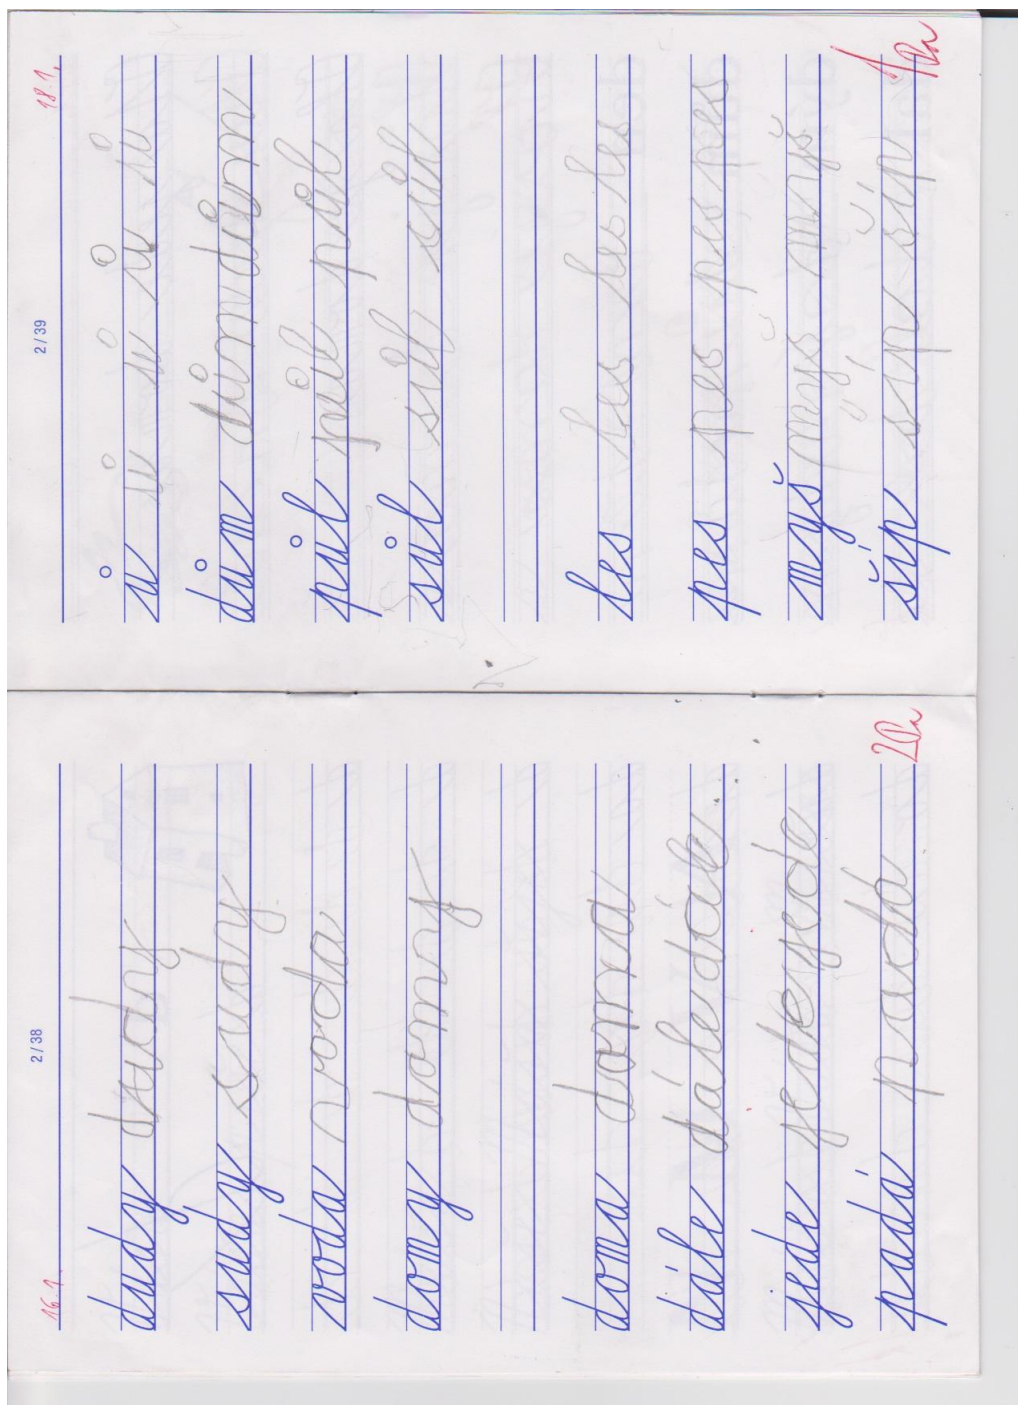 16.1.
2/38
dudy dudy
sudy sudy
voda voda
domy domy
doma doma
dále dále dále
jede jede jede
padá pada
2
18.1.
2/39
ů ů ů ů ů
dům dům dům
půl půl půl
sůl sůl sůl
les les les les
pes pes pes pes
myš myš myš
šíp šíp šíp
1